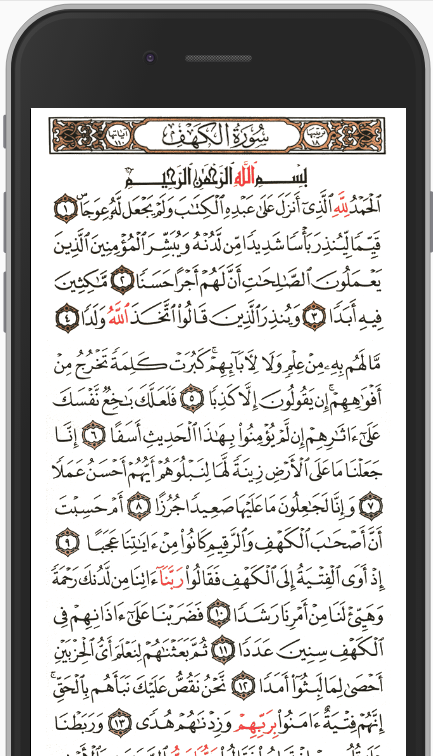 ترتيبها ١٨ سُورَةُ الكَهْفِ آياتها ١١٠
بِسْمِ ٱللَّهِ ٱلرَّحْمَٰنِ ٱلرَّحِيمِ
ٱلْحَمْدُ لِلَّهِ ٱلَّذِىٓ أَنزَلَ عَلَىٰ عَبْدِهِ ٱلْكِتَٰبَ وَلَمْ يَجْعَل لَّهُۥ عِوَجَاۜ ١
قَيِّمًا لِّيُنذِرَ بَأْسًا شَدِيدًا مِّن لَّدُنْهُ وَيُبَشِّرَ ٱلْمُؤْمِنِينَ ٱلَّذِينَ
يَعْمَلُونَ ٱلصَّٰلِحَٰتِ أَنَّ لَهُمْ أَجْرًا حَسَنًا ٢ مَّٰكِثِينَ
فِيهِ أَبَدًا ٣ وَيُنذِرَ ٱلَّذِينَ قَالُوا۟ ٱتَّخَذَ ٱللَّهُ وَلَدًا ٤
مَّا لَهُم بِهِۦ مِنْ عِلْمٍ وَلَا لِءَابَآئِهِمْ ۚ كَبُرَتْ كَلِمَةً تَخْرُجُ مِنْ
أَفْوَٰهِهِمْ ۚ إِن يَقُولُونَ إِلَّا كَذِبًا ٥ فَلَعَلَّكَ بَٰخِعٌ نَّفْسَكَ
عَلَىٰٓ ءَاثَٰرِهِمْ إِن لَّمْ يُؤْمِنُوا۟ بِهَٰذَا ٱلْحَدِيثِ أَسَفًا ٦ إِنَّا
جَعَلْنَا مَا عَلَى ٱلْأَرْضِ زِينَةً لَّهَا لِنَبْلُوَهُمْ أَيُّهُمْ أَحْسَنُ عَمَلًا
٧ وَإِنَّا لَجَٰعِلُونَ مَا عَلَيْهَا صَعِيدًا جُرُزًا ٨ أَمْ حَسِبْتَ
أَنَّ أَصْحَٰبَ ٱلْكَهْفِ وَٱلرَّقِيمِ كَانُوا۟ مِنْ ءَايَٰتِنَا عَجَبًا ٩
إِذْ أَوَى ٱلْفِتْيَةُ إِلَى ٱلْكَهْفِ فَقَالُوا۟ رَبَّنَآ ءَاتِنَا مِن لَّدُنكَ رَحْمَةً
وَهَيِّئْ لَنَا مِنْ أَمْرِنَا رَشَدًا ١٠ فَضَرَبْنَا عَلَىٰٓ ءَاذَانِهِمْ فِى
ٱلْكَهْفِ سِنِينَ عَدَدًا ١١ ثُمَّ بَعَثْنَٰهُمْ لِنَعْلَمَ أَىُّ ٱلْحِزْبَيْنِ
أَحْصَىٰ لِمَا لَبِثُوٓا۟ أَمَدًا ١٢ نَّحْنُ نَقُصُّ عَلَيْكَ نَبَأَهُم بِٱلْحَقِّ ۚ
إِنَّهُمْ فِتْيَةٌ ءَامَنُوا۟ بِرَبِّهِمْ وَزِدْنَٰهُمْ هُدًى ١٣ وَرَبَطْنَا